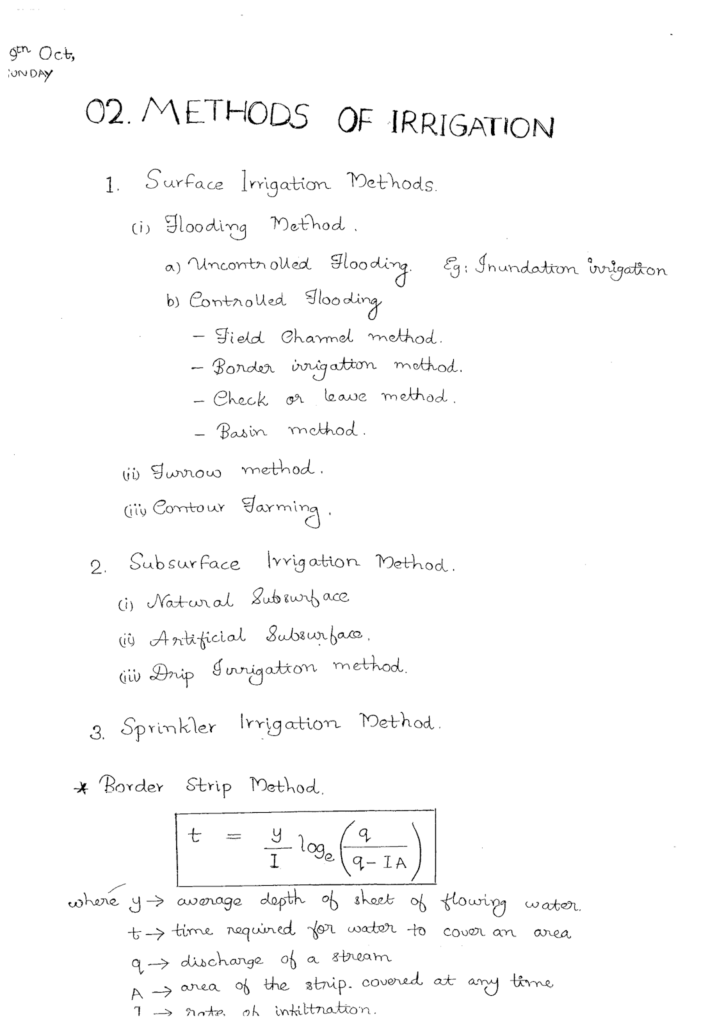 9th Oct,
SUNDAY
02. METHODS OF IRRIGATION
1. Surface Irrigation Methods.
(i) Flooding Method.
a) Uncontrolled Flooding. Eg: Inundation irrigation
b) Controlled Flooding
- Field Channel method.
- Border irrigation method.
- Check or leave method.
- Basin method.
(ii) Furrow method.
(iii) Contour Farming.
2. Subsurface Irrigation Method.
(i) Natural Subsurface
(ii) Artificial Subsurface.
(iii) Drip Irrigation method.
3. Sprinkler Irrigation Method.
* Border Strip Method.
t = y/I logₑ (q/(q - IA))
where y → average depth of sheet of flowing water.
t → time required for water to cover an area
q → discharge of a stream
A → area of the strip. covered at any time
I → rate of infiltration.